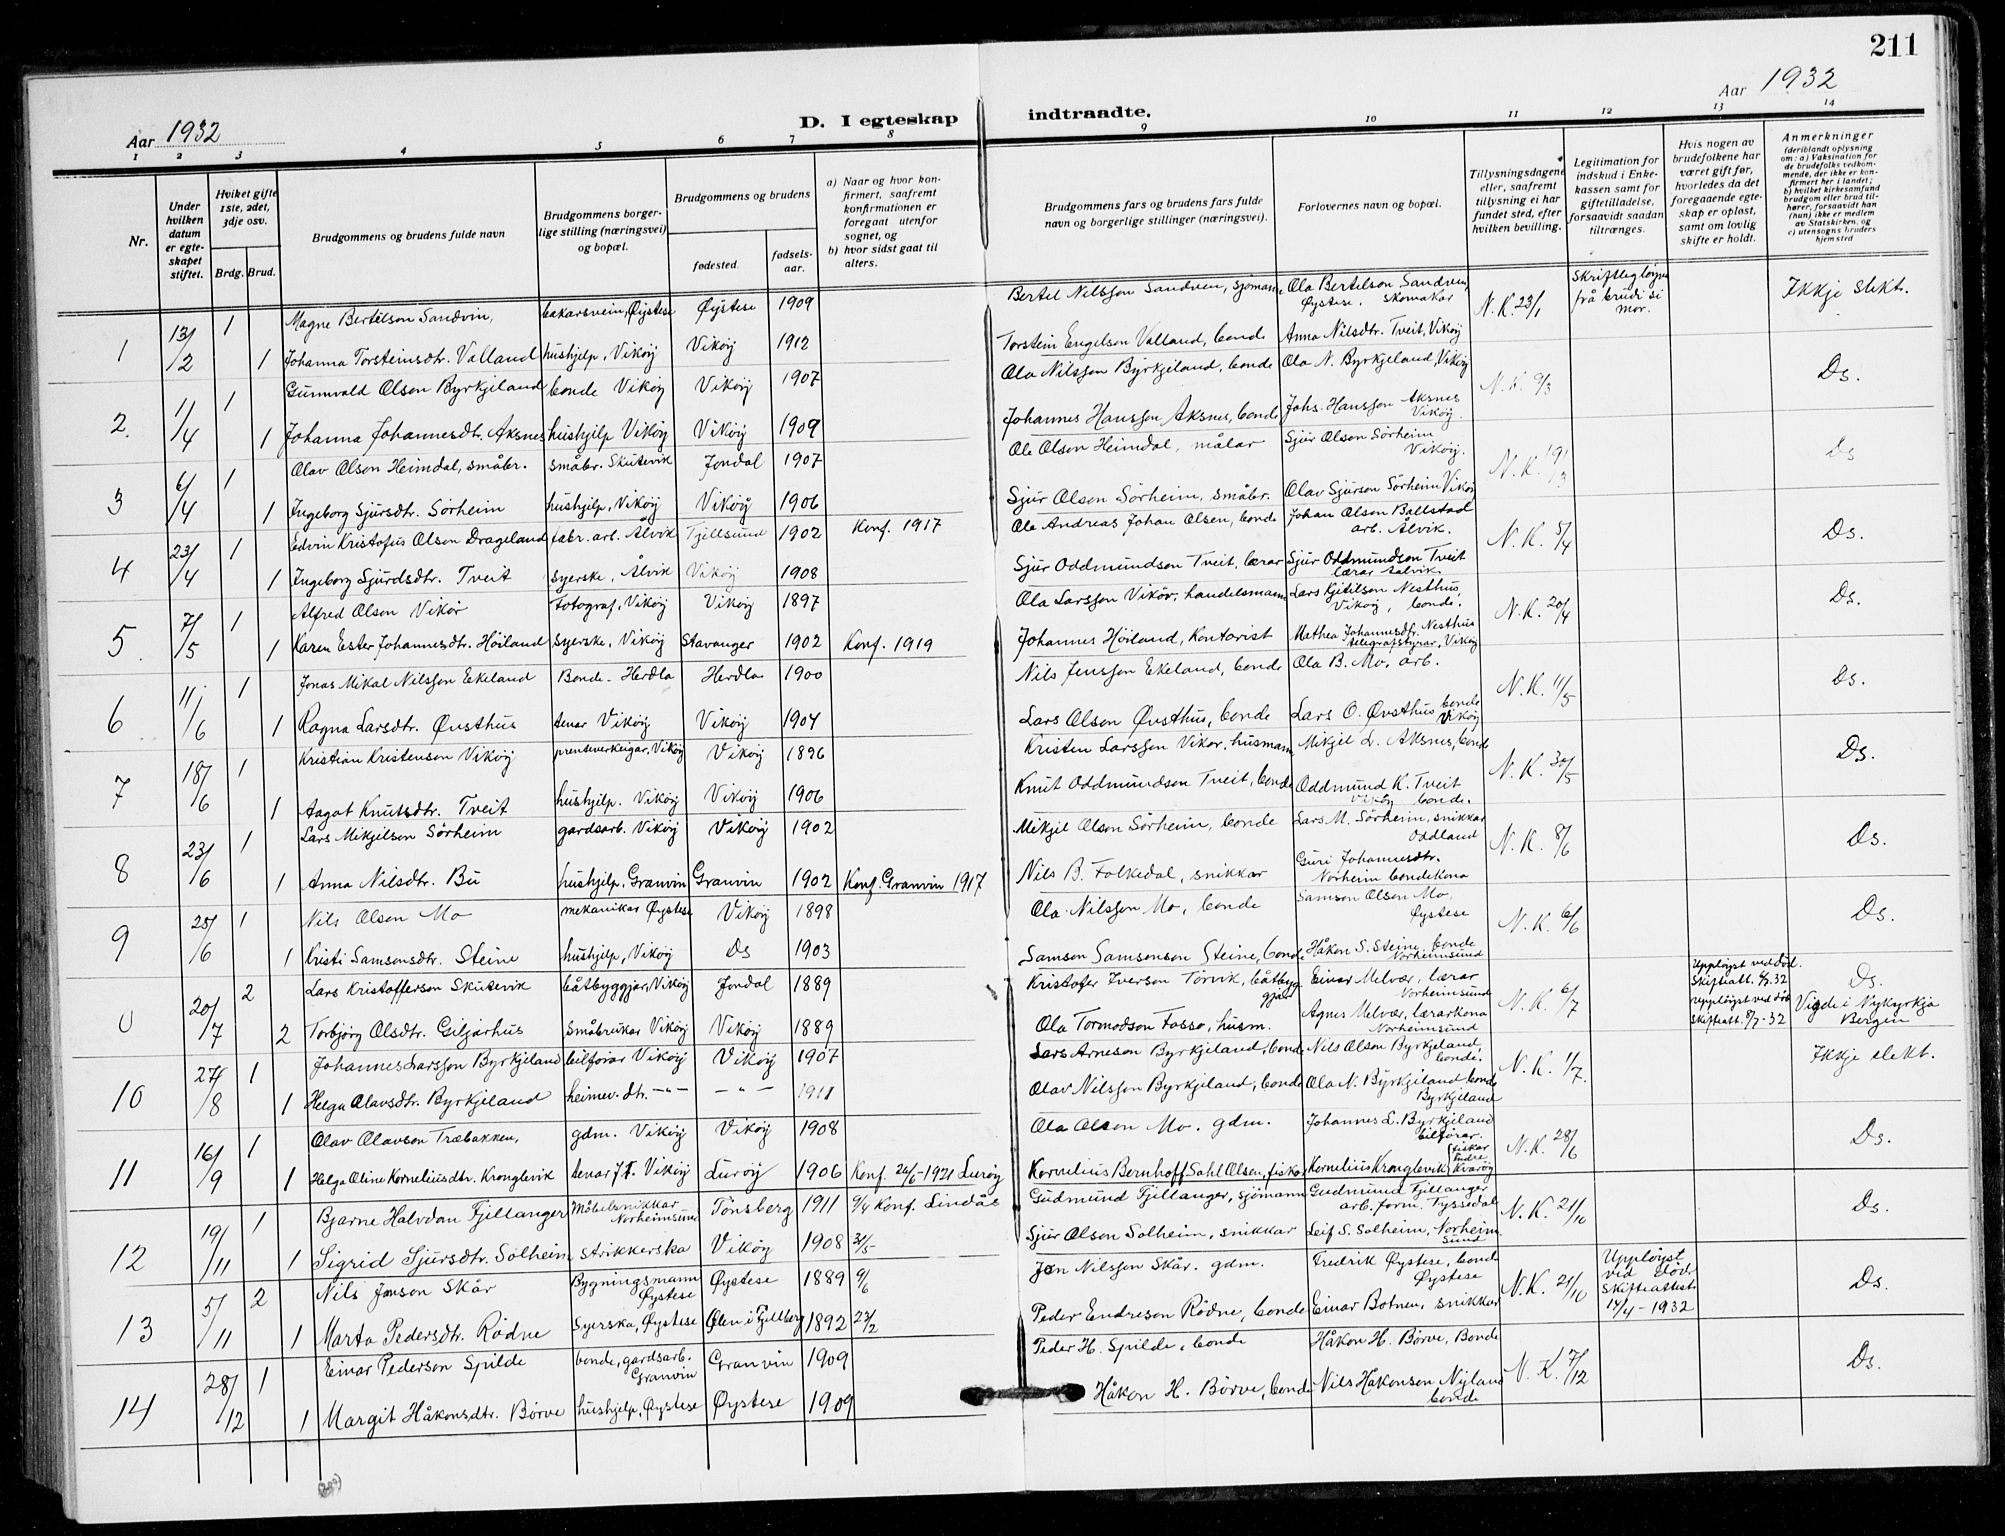 211
Aar 1932
Aar 1932
D. I egteskap indtraadte.
1 2 3 4 5 6 7 8 9 10 11 12 13 14
Nr.
Under hvilken datum er egteskapet stiftet.
Hviket gifte 1ste, 2det, 3dje osv.
Brdg. Brud.
Brudgommens og brudens fulde navn
Brudgommens borgerlige stilling (næringsvei) og bopæl.
Brudgommens og brudens
fødested.
fødselsaar.
a) Naar og hvor konfirmert, saafremt konfirmationen er foregaat utenfor sognet, og
b) hvor sidst gaat til alters.
Brudgommens fars og brudens fars fulde navn og borgerlige stillinger (næringsvei).
Forlovernes navn og bopæl.
Tillysningsdagene eller, saafremt tillysning ei har fundet sted, efter hvilken bevilling.
Legitimation for indskud i Enkekassen samt for giftetilladelse, forsaavidt saadan tiltrænges.
Hvis nogen av brudefolkene har været gift før, hvorledes da det foregaaende egteskap er opløst, samt om lovlig skifte er holdt.
Anmerkninger (deriblandt oplysning om: a) Vaksination for de brudefolks vedkommende, der ikke er konfirmert her i landet; b) hvilket kirkesamfund brudgom eller brud tilhører, forsaavidt han (hun) ikke er medlem av Statskirken, og c) utensogns bruders hjemsted
1 13/2 1 Magne Bertelson Sandvin, bakarsvein, Øystese Øystese 1909 Bertel Nilsson Sandven, sjømann Ola Bertelson Sandven, Øystese, skomakar N.K. 23/1 Skriftleg løyve frå brudi si mor. Ikkje slekt.
1 Johanna Torsteinsdtr. Valland hushjelp, Vikøy Vikøy 1912 Torstein Engelson Valland, bonde Anna Nilsdtr. Tveit, Vikøy
2. 1/4 1 Gunnvald Olson Byrkjeland bonde Vikøy Vikøy 1907 Ola Nilsson Byrkjeland, bonde Ola N. Byrkjeland, Vikøy N.K. 9/3 Ds.
1 Johanna Johannesdtr. Aksnes hushjelp Vikøy Vikøy 1909 Johannes Hansson Aksnes, bonde Johs. Hansson Aksnes Vikøy.
3 6/4 1 Olav Olson Heimdal, småbr. småbr. Skutevik Jondal 1907 Ole Olson Heimdal, målar Sjur Olson Sørheim Vikøy. N.K. 19/3 Ds
1 Ingeborg Sjursdtr. Sørheim hushjelp, Vikøy Vikøy 1906 Sjur Olson Sørheim, småbr. Olav Sjurson Sørheim Vikøy
4 23/4 1 Edvin Kristofus Olsen Drageland fabr. arb. Ålvik Tjellsund 1902 Konf. 1917 Ole Andreas Johan Olsen, bonde Johan Olson Ballstad arb. Ålvik. N.K. 5/4 Ds.
1 Ingeborg Sjurdsdtr. Tveit syerske, Ålvik Vikøy 1908 Sjur Oddmundson Tveit, lærar Sjur Oddmundson Tveit lærar Aalvik
5. 7/5 1 Alfred Olson Vikør Fotograf, Vikøy Vikøy 1897 Ola Larsson Vikør, handelsmann Lars Kjetilson Nesthus, Vikøy, bonde. N.K. 20/4 Ds.
1 Karen Ester Johannesdtr. Høiland syerske, Vikøy Stavanger 1902 Konf. 1919 Johannes Høiland, Kontorist Methea Johannesdtr. Nesthus telegrafstyrar, Vikøy
6 11/6 1 Jonas Mikal Nilsson Ekeland Bonde - Herdla Herdla 1900 Nils Jensson Ekeland, bonde Ola B. Mo, arb. N.K. 11/5 Ds.
1 Ragna Larsdtr. Øvsthus tenar Vikøy Vikøy 1904 Lars Olson Øvsthus, bonde Lars O. Øvsthus bonde Vikøy
7 18/6 1 Kristian Kristenson Vikøy prenteverkeigar, Vikøy Vikøy 1896 Kristen Larsson Vikør, husmann Mikjel L. Aksnes, bonde N.K. 30/5 Ds.
1 Aagot Knutsdtr. Tveit hushjelp. Vikøy Vikøy 1906 Knut Oddmundson Tveit, bonde Oddmund K. Tveit Vikøy bonde.
8 23/6 1 Lars Mikjelson Sørheim gardsarb. Vikøy Vikøy 1902 Mikjel Olson Sørheim, bonde Lars M. Sørheim, snikkar Oddland N.K. 8/6 Ds.
1 Anna Nilsdtr. Bu hushjelp, Granvin Granvin 1902 Konf. Granvin 1917 Nils B. Folkedal, snikkar Guri Johannesdtr. Norheim bondekona
9 25/6 1 Nils Olson Mo mekanikar Øystese Vikøy 1898 Ola Nilsson Mo, bonde Samson Olson Mo, Øystese N.K. 6/6 Ds.
1 Kristi Samsonsdtr. Steine hushjelp, Vikøy Ds 1903 Samson Samsonson Steine, bonde Håkon S. Steine, bonde Norheimsund
0 20/7 2 Lars Kristofferson Skutevik båtbyggjar, Vikøy Jondal 1889 Kristofer Iverson Torvik, båtbyggjar Einar Melvær, lærar Norheimsund N.K. 6/7 Uppløyst ved død. Skifteatt. 6/7.32 Ds.
2 Torbjørg Olsdtr. Giljarhus Småbrukar Vikøy Vikøy 1889 Ola Tormodson Fosso, husm. Agnes Melvær, lærarkona Norheimsund uppløyst ved død skifteatt. 8/7-32 Vigde i Nykyrkja Bergen
10 27/8 1 Johannes Larsson Byrkjeland bilførar Vikøy Vikøy 1907 Lars Arneson Byrkjeland, bonde Nils Olson Byrkjeland bonde. N.K. 1/7. Ikkje slekt.
1 Helga Olavsdtr. Byrkjeland heimev. dtr. -"- -"- 1911 Olav Nilsson Byrkjeland, bonde Ola N. Byrkjeland bonde Byrkjeland
11 16/9 1 Olav Olavson Træbakken, gdm. Vikøy Vikøy 1908 Ola Olson Mo. gdm. Johannes L. Byrkjeland bilførar. N.K. 28/6 Ds.
1 Helga Oline Korneliusdtr. Kronglevik tenar J.T. Vikøy Lurøy 1906 Konf. 26/6-1921 Lurøy Kornelius Bernhoff Sahl Olsen, fiskar Kornelius Kronglevik fiskar Indre Kvarøy
12 19/11 1 Bjarne Halvdan Fjellanger Møbelsnikkar Norheimsund Tønsberg 1911 9/4 Konf. Lindås Gudmund Fjellanger, sjømann Gudmund Fjellanger arb. form. Tyssedal N.K. 21/10 Ds.
1 Sigrid Sjursdtr. Solheim strikkerska Vikøy 1908 31/5 Sjur Olson Solheim, snikkar Leif S. Solheim, Norheimsund
13 5/11 2 Nils Jonson Skår Bygningsmann Øystese Øystese 1889 9/6 Jon Nilsson Skår. gdm. Fredrik Øystese, bonde Øystese N.K. 21/10 Uppløyst ved død Skifteattest 14/4-1932 Ds.
1 Marta Pedersdtr. Rødne Syerska, Øystese Ølen i Fjellberg 1892 23/2 Peder Endreson Rødne, bonde Einar Botnen, snikkar
14 28/12 1 Einar Pederson Spilde bonde, gardsarb. Granvin Granvin 1909 Peder H. Spilde, bonde Håkon H. Børve, Bonde N.K. 7/12 Ds.
1 Margit Håkonsdtr. Børve hushjelp, Øystese Øystese 1909 Håkon H. Børve, bonde Nils Håkonson Nyland bonde